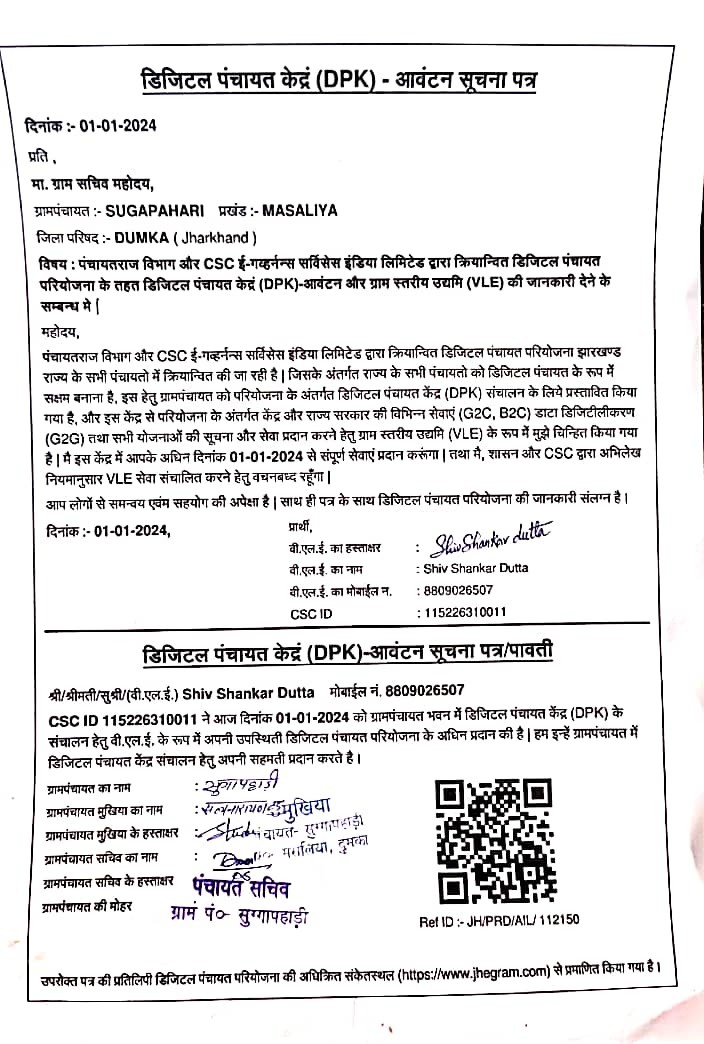 डिजिटल पंचायत केद्रं (DPK) - आवंटन सूचना पत्र
दिनांक :- 01-01-2024
प्रति ,
मा. ग्राम सचिव महोदय,
ग्रामपंचायत :- SUGAPAHARI प्रखंड :- MASALIYA
जिला परिषद :- DUMKA ( Jharkhand )
विषय : पंचायतराज विभाग और CSC ई-गव्हर्नन्स सर्विसेस इंडिया लिमिटेड द्वारा क्रियान्वित डिजिटल पंचायत
परियोजना के तहत डिजिटल पंचायत केद्रं (DPK)-आवंटन और ग्राम स्तरीय उद्यमि (VLE) की जानकारी देने के
सम्बन्ध मे |
महोदय,
पंचायतराज विभाग और CSC ई-गव्हर्नन्स सर्विसेस इंडिया लिमिटेड द्वारा क्रियान्वित डिजिटल पंचायत परियोजना झारखण्ड
राज्य के सभी पंचायतो में क्रियान्वित की जा रही है | जिसके अंतर्गत राज्य के सभी पंचायतो को डिजिटल पंचायत के रूप में
सक्षम बनाना है, इस हेतु ग्रामपंचायत को परियोजना के अंतर्गत डिजिटल पंचायत केंद्र (DPK) संचालन के लिये प्रस्तावित किया
गया है, और इस केंद्र से परियोजना के अंतर्गत केंद्र और राज्य सरकार की विभिन्न सेवाएं (G2C, B2C) डाटा डिजिटीलीकरण
(G2G) तथा सभी योजनाओं की सूचना और सेवा प्रदान करने हेतु ग्राम स्तरीय उद्यमि (VLE) के रूप में मुझे चिन्हित किया गया
है | मै इस केंद्र में आपके अधिन दिनांक 01-01-2024 से संपूर्ण सेवाएं प्रदान करूंगा | तथा मै, शासन और CSC द्वारा अभिलेख
नियमानुसार VLE सेवा संचालित करने हेतु वचनबध्द रहूँगा |
आप लोगों से समन्वय एवंम सहयोग की अपेक्षा है | साथ ही पत्र के साथ डिजिटल पंचायत परियोजना की जानकारी संलग्न है |
दिनांक :- 01-01-2024,
प्रार्थी,
वी.एल.ई. का हस्ताक्षर : Shiv Shankar dutta
वी.एल.ई. का नाम : Shiv Shankar Dutta
वी.एल.ई. का मोबाईल न. : 8809026507
CSC ID : 115226310011
डिजिटल पंचायत केद्रं (DPK)-आवंटन सूचना पत्र/पावती
श्री/श्रीमती/सुश्री/(वी.एल.ई.) Shiv Shankar Dutta मोबाईल नं. 8809026507
CSC ID 115226310011 ने आज दिनांक 01-01-2024 को ग्रामपंचायत भवन में डिजिटल पंचायत केंद्र (DPK) के
संचालन हेतु वी.एल.ई. के रूप में अपनी उपस्थिती डिजिटल पंचायत परियोजना के अधिन प्रदान की है | हम इन्हें ग्रामपंचायत में
डिजिटल पंचायत केंद्र संचालन हेतु अपनी सहमती प्रदान करते है |
ग्रामपंचायत का नाम : सुगापहाड़ी
ग्रामपंचायत मुखिया का नाम : मुखिया
ग्रामपंचायत मुखिया के हस्ताक्षर : पंचायत- सुग्गापहाड़ी
ग्रामपंचायत सचिव का नाम : मसलिया, दुमका
ग्रामपंचायत सचिव के हस्ताक्षर पंचायत सचिव
ग्रामपंचायत की मोहर ग्राम पं० सुग्गापहाड़ी
Ref ID :- JH/PRD/AIL/ 112150
उपरोक्त पत्र की प्रतिलिपी डिजिटल पंचायत परियोजना की अधिक्रित संकेतस्थल (https://www.jhegram.com) से प्रमाणित किया गया है |